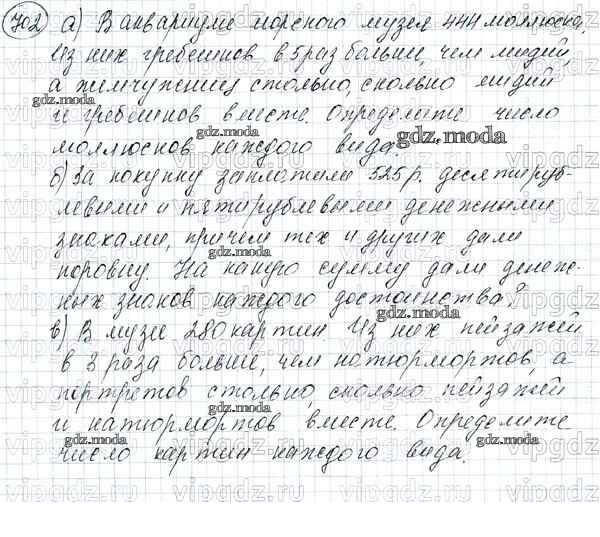 702 а) В аквариуме морского музея 444 моллюска.
Из них гребешков в 5 раз больше, чем мидий,
а жемчужниц столько, сколько мидий
и гребешков вместе. Определите число
моллюсков каждого вида.
б) За покупку заплатили 525 р. десятируб-
левыми и пятирублевыми денежными
знаками, причем тех и других дали
поровну. На какую сумму дали денеж-
ных знаков каждого достоинства?
в) В музее 280 картин. Из них пейзажей
в 3 раза больше, чем натюрмортов, а
портретов столько, сколько пейзажей
и натюрмортов вместе. Определите
число картин каждого вида.
gdz.moda
gdz.moda
gdz.moda
gdz.moda
gdz.moda
gdz.moda
gdz.moda
gdz.moda
gdz.moda
vipgdz.ru